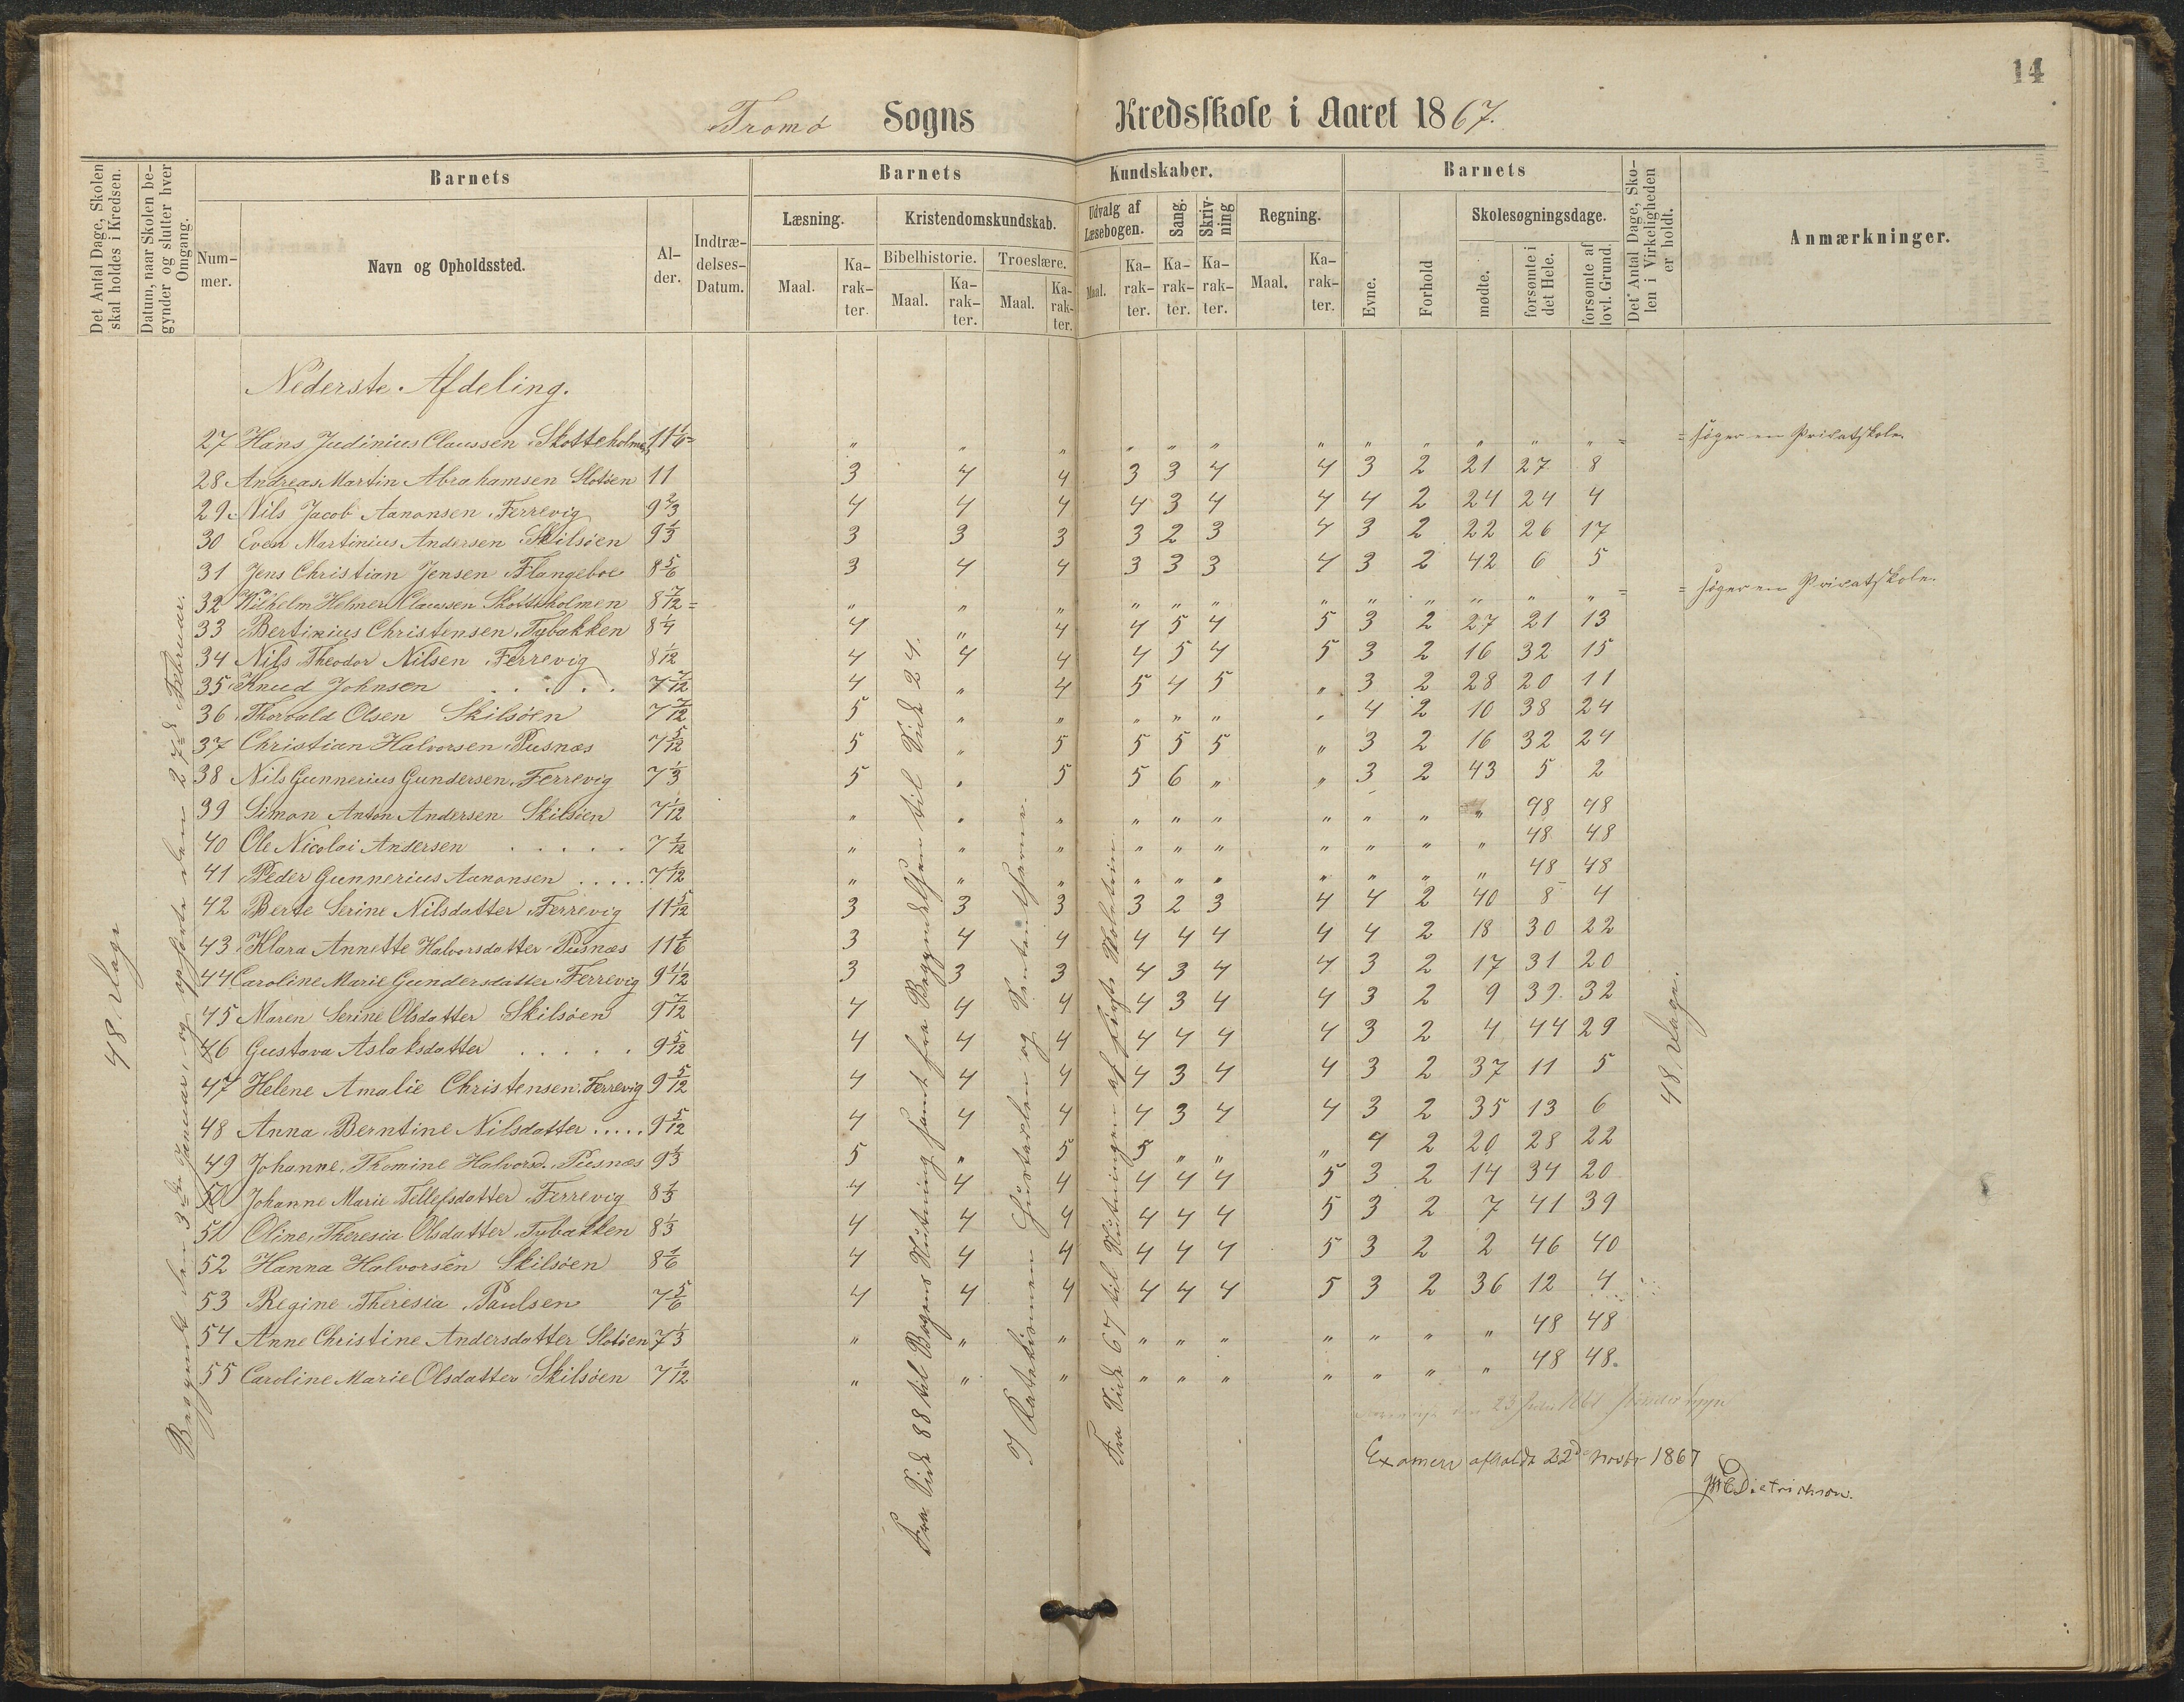 14
Tromø Sogns Kredsskole i Aaret 1867.
Det Antal Dage, Skolen skal holdes i Kredsen.
Datum, naar Skolen begynder og slutter hver Omgang.
Barnets
Barnets Kundskaber.
Barnets
Det Antal Dage, Skolen i Virkeligheden er holdt.
Anmærkninger.
Nummer.
Navn og Opholdssted.
Alder.
Indtrædelses-Datum.
Læsning.
Kristendomskundskab.
Udvalg af Læsebogen.
Sang.
Skrivning
Regning.
Evne.
Forhold
Skolesøgningsdage.
Bibelhistorie.
Troeslære.
Maal. Karakter. Maal. Karakter. Maal. Karakter. Maal. Karakter. Karakter. Karakter. Maal. Karakter.
mødte.
forsømte i det Hele.
forsømte af lovl. Grund.
48 Dage
Begyndt den 3die Januar og ophørte den 27de Februar.
Fra Side 88 til Bogens Slutning samt fra Begyndelsen til Side 24.
I Katekismen Hustavlen og
Fra Side 67 til Slutningen af
48 Dage.
Nederste Afdeling.
27 Hans Judinius Claussen Skotteholmen 11 1/6 = " " " " " " " " " " " " = = søger en Privatskole.
28 Andreas Martin Abrahamsen Slotsen 11 3 4 4 3 3 4 4 3 2 21 27 8
29 Nils Jacob Aanonsen Ferrevig 9 2/3 4 4 4 4 3 4 4 4 2 24 24 4
30 Even Martinius Andersen Skilsöen 9 1/3 3 3 3 3 2 3 4 3 2 22 26 17
31 Jens Christian Jensen Flangeboe 8 5/6 3 4 4 3 3 3 4 3 2 42 6 5
32 Wilhelm Helmer Claussen Skotteholmen 8 7/12 = " " " " " " " " " " " " = = søger en Privatskole.
33 Bertinius Christensen Tybakken 8 1/4 4 " 4 4 5 4 5 3 2 27 21 13
34 Nils Theodor Nilsen Ferrevig 8 1/12 4 4 4 4 5 4 5 3 2 16 32 15
35 Knud Johnsen . . . . . 7 7/12 4 " 4 5 4 5 " 3 2 28 20 11
36 Thorvald Olsen Skilsöen 7 7/12 5 " " " " " " 4 2 10 38 24
37 Christian Halvorsen Pusnæs 7 5/12 5 " 5 5 5 5 " 3 2 16 32 24
38 Nils Gunnerius Gundersen Ferrevig 7 1/3 5 " 5 5 6 " " 3 2 43 5 2
39 Simon Anton Andersen Skilsöen 7 1/12 " " " " " " " " " " 48 48
40 Ole Nicolai Andersen . . . . . 7 1/12 " " " " " " " " " " 48 48
41 Peder Gunnerius Aanonsen . . . . . 7 1/12 " " " " " " " " " " 48 48
42 Berte Serine Nilsdatter Ferrevig 11 5/12 3 3 3 3 2 3 4 4 2 40 8 4
43 Klara Annette Halvorsdatter Pusnæs 11 1/6 3 4 4 4 4 4 4 4 2 18 30 22
44 Caroline Marie Gundersdatter Ferrevig 9 11/12 3 3 3 4 3 4 4 3 2 17 31 20
45 Maren Serine Olsdatter Skilsöen 9 7/12 4 4 4 4 3 4 4 3 2 9 39 32
46 Gustava Aslaksdatter . . . . . 9 5/12 4 4 4 4 4 4 4 3 2 4 44 29
47 Helene Amalie Christensen Ferrevig 9 5/12 4 4 4 4 3 4 4 3 2 37 11 5
48 Anna Berntine Nilsdatter . . . . . 9 5/12 4 4 4 4 3 4 4 3 2 35 13 6
49 Johanne Thomine Halvorsd. Pusnæs 9 1/3 5 " 5 5 " " " 4 2 20 28 22
50 Johanne Marie Tellefsdatter Ferrevig 8 1/3 4 4 4 4 4 4 5 3 2 14 34 20
51 Oline Theresia Olsdatter Tybakken 8 1/3 4 4 4 4 4 4 5 3 2 7 41 39
52 Hanna Halvorsen Skilsöen 8 1/6 4 4 4 4 4 4 5 3 2 2 46 40
53 Regine Theresia Paulsen 7 5/6 4 4 4 4 4 4 5 3 2 36 12 4
54 Anne Christine Andersdatter Slotöen 7 1/3 " " " " " " " " " " 48 48
55 Caroline Marie Olsdatter Skilsöen 7 1/12 " " " " " " " " " " 48 48.
Examen afholdt 22de Novbr 1867
Dietrichson.